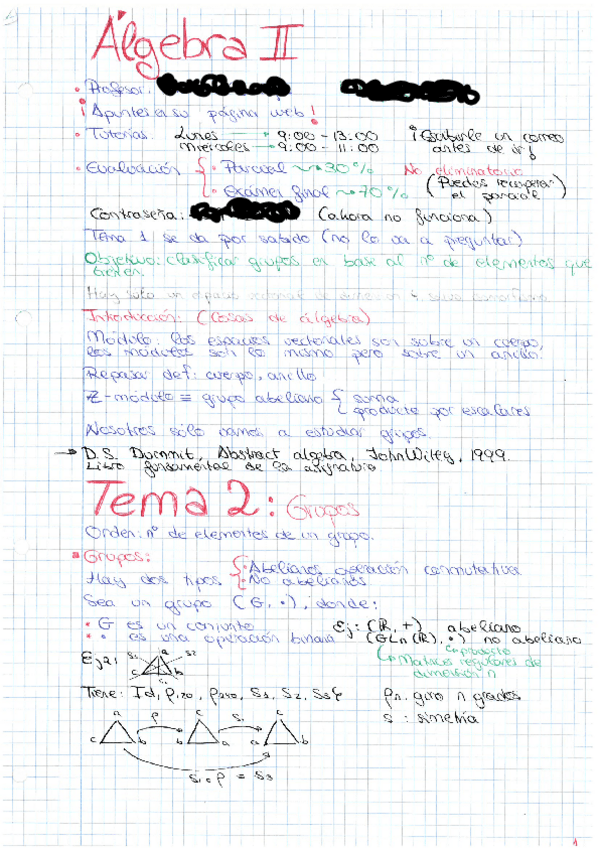 Álgebra II
• Profesor:
¡Apuntes en su página web!
• Tutorías: Lunes → 9:00 - 13:00 ¡Escribirle un correo
miércoles → 9:00 - 11:00 antes de ir!
• Evaluación { • Parcial ~> 30% No eliminatorio
• Examen final ~> 70% (Puedes recuperar
el parcial)
Contraseña: (ahora no funciona)
Tema 1 se da por sabido (no lo va a preguntar)
Objetivo: clasificar grupos en base al nº de elementos que
tienen.
Hay sólo un salvo
Introducción: (Cosas de álgebra)
Módulo: los espacios vectoriales son sobre un cuerpo,
los módulos son lo mismo pero sobre un anillo.
Repasar def: cuerpo, anillo
Z-módulo ≡ grupo abeliano { suma
producto por escalares
Nosotros sólo vamos a estudiar grupos.
→ D.S. Dummit, Abstract algebra, John Wiley, 1999.
Libro fundamental de la asignatura
Tema 2: Grupos
Orden: nº de elementos de un grupo.
Grupos:
Hay dos tipos { • Abelianos: operación conmutativa
• No abelianos
Sea un grupo (G, ·), donde:
• G es un conjunto Ej: (R, +) abeliano
• · es una operación binaria (GLn(R), ·) no abeliano
↳ producto
↳ Matrices regulares de
dimensión n
Ej 2: s1 a s2
c b
s3
Tiene: Id, ρ120, ρ240, s1, s2, s3} ρn: giro n grados
s: simetría
a ρ c s1 c
c b b a a b
s1 ∘ ρ = s3
1